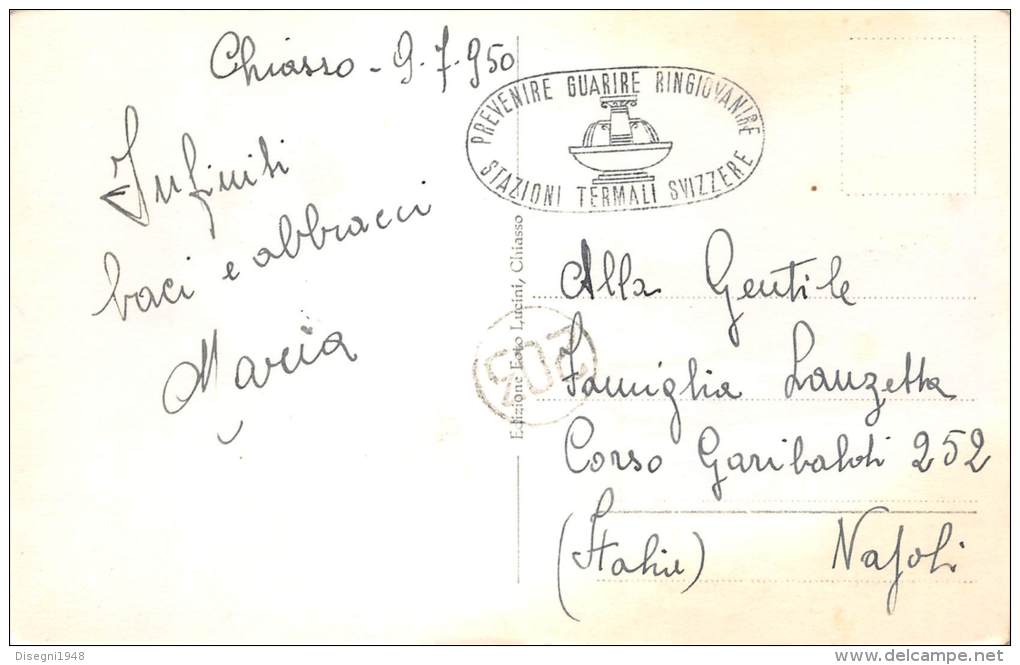 Chiasso - 9.7.950
Infiniti
baci e abbracci
Maria
PREVENIRE GUARIRE RINGIOVANIRE
STAZIONI TERMALI SVIZZERE
Edizione Foto Lucini, Chiasso
203
Alla Gentile
Famiglia Lanzetta
Corso Garibaldi 252
(Italia) Napoli
Disegni1948
www.delcampe.net